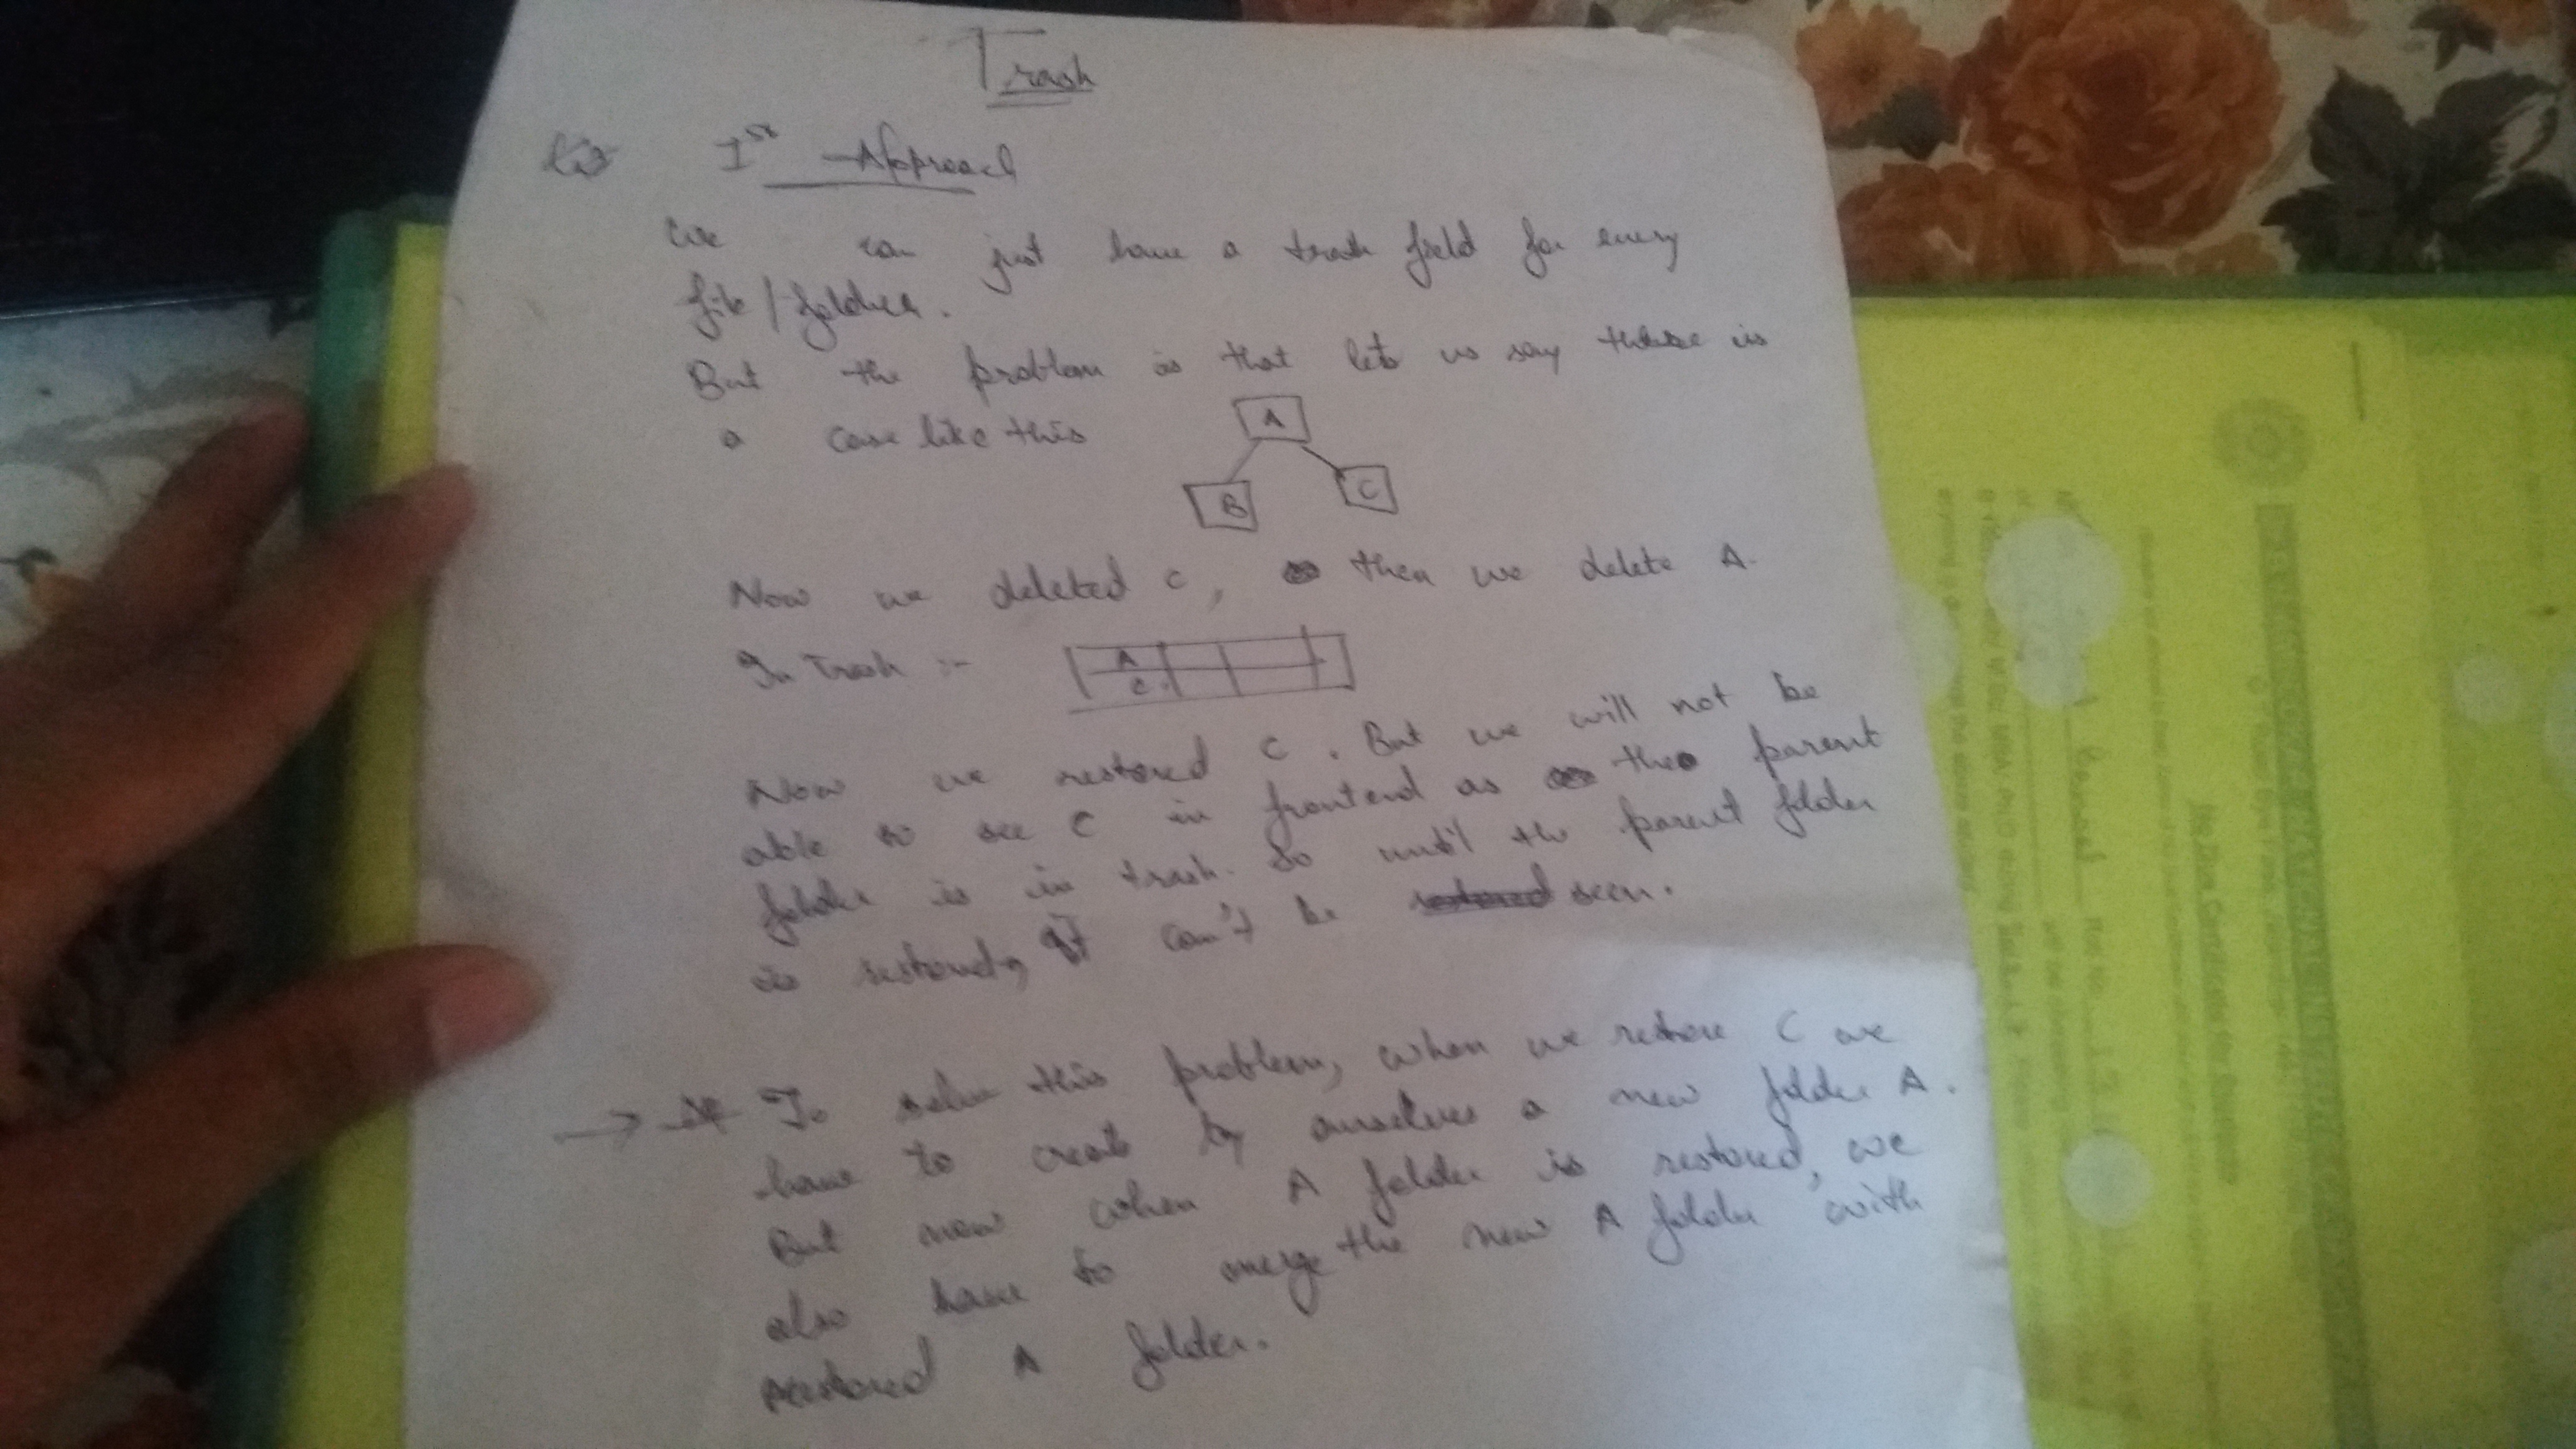 Trash
1st Approach
We can just have a trash field for every
file/folder.
But the problem is that lets us say there is
a case like this
A
B C
Now we deleted C, then we delete A.
In Trash :-
A
C
Now we restored C. But we will not be
able to see C in frontend as the parent
folder is in trash. So until the parent folder
is restored, it can't be seen.
→ To solve this problem, when we restore C we
have to create by ourselves a new folder A.
But now when A folder is restored, we
also have to merge the new A folder with
restored A folder.